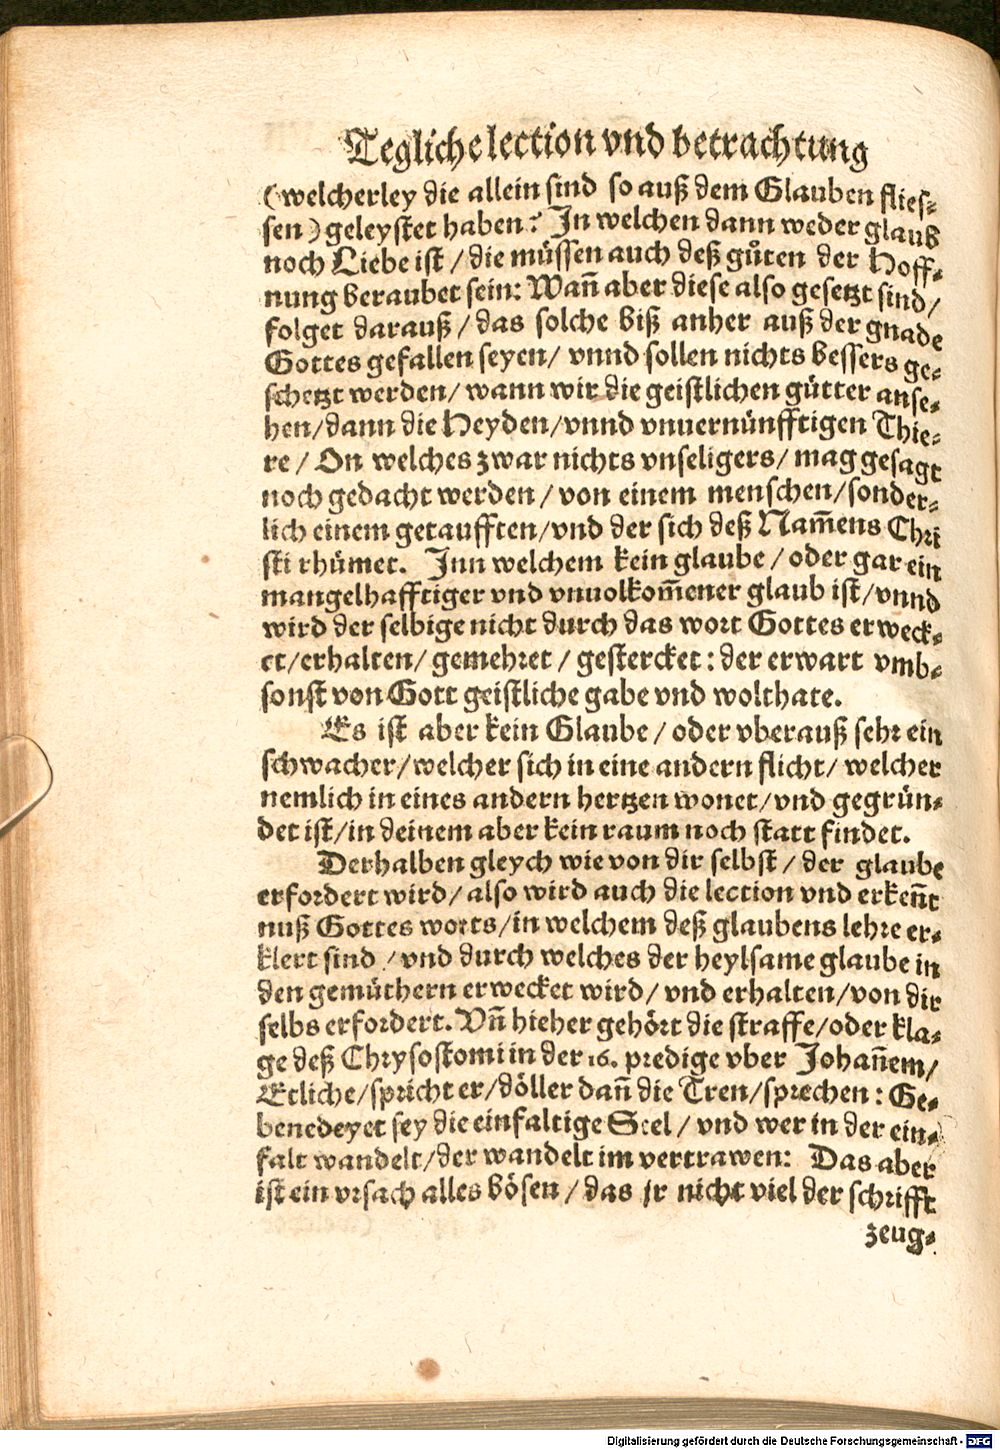 Tegliche lection vnd betrachtung
(welcherley die allein sind so auß dem Glauben flies⸗
sen) geleystet haben? In welchen dann weder glaub
noch Liebe ist / die müssen auch deß gůten der Hoff⸗
nung beraubet sein: Wañ aber diese also gesetzt sind/
folget darauß / das solche biß anher auß der gnade
Gottes gefallen seyen/ vnnd sollen nichts bessers ge⸗
schetzt werden/ wann wir die geistlichen gütter anse⸗
hen/dann die Heyden/vnnd vnuernünfftigen Thie⸗
re / On welches zwar nichts vnseligers/ mag gesagt
noch gedacht werden / von einem menschen/sonder⸗
lich einem getaufften/vnd der sich deß Nam̃ens Chri
sti rhümet. Inn welchem kein glaube / oder gar ein
mangelhafftiger vnd vnuolkom̃ener glaub ist/vnnd
wird der selbige nicht durch das wort Gottes erweck⸗
et/erhalten/ gemehret / gestercket: der erwart vmb⸗
sonst von Gott geistliche gabe vnd wolthate.
Es ist aber kein Glaube / oder vberauß sehr ein
schwacher/welcher sich in eine andern flicht/ welcher
nemlich in eines andern hertzen wonet/vnd gegrün⸗
det ist/in deinem aber kein raum noch statt findet.
Derhalben gleych wie von dir selbst / der glaube
erfordert wird/ also wird auch die lection vnd erkeñt
nuß Gottes worts/in welchem deß glaubens lehre er⸗
klert sind / vnd durch welches der heylsame glaube in
den gemüthern erwecket wird/ vnd erhalten/von dir
selbs erfordert. Vñ hieher gehört die straffe/oder kla⸗
ge deß Chrysostomi in der 16. predige vber Johañem/
Etliche/spricht er/döller dañ die Tren/sprechen: Ge⸗
benedeyet sey die einfaltige Seel / vnd wer in der ein⸗
falt wandelt/der wandelt im vertrawen: Das aber
ist ein vrsach alles bösen / das jr nicht viel der schrifft
zeug⸗
Digitalisierung gefördert durch die Deutsche Forschungsgemeinschaft - DFG